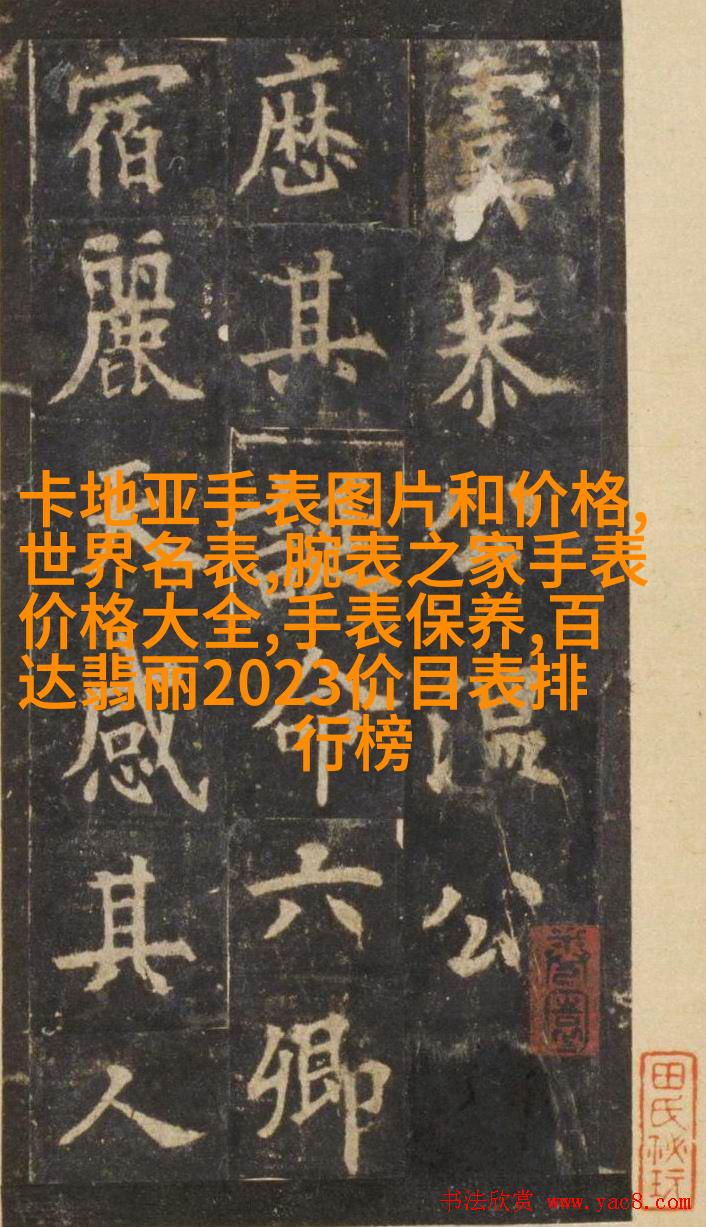 恭公温公
厯其詔命六卿
宿麗天感其人
卡地亚手表图片和价格,
世界名表,腕表之家手表
价格大全,手表保养,百
达翡丽2023价目表排
行榜
田氏秘玩
书法欣赏 www.yac8.com